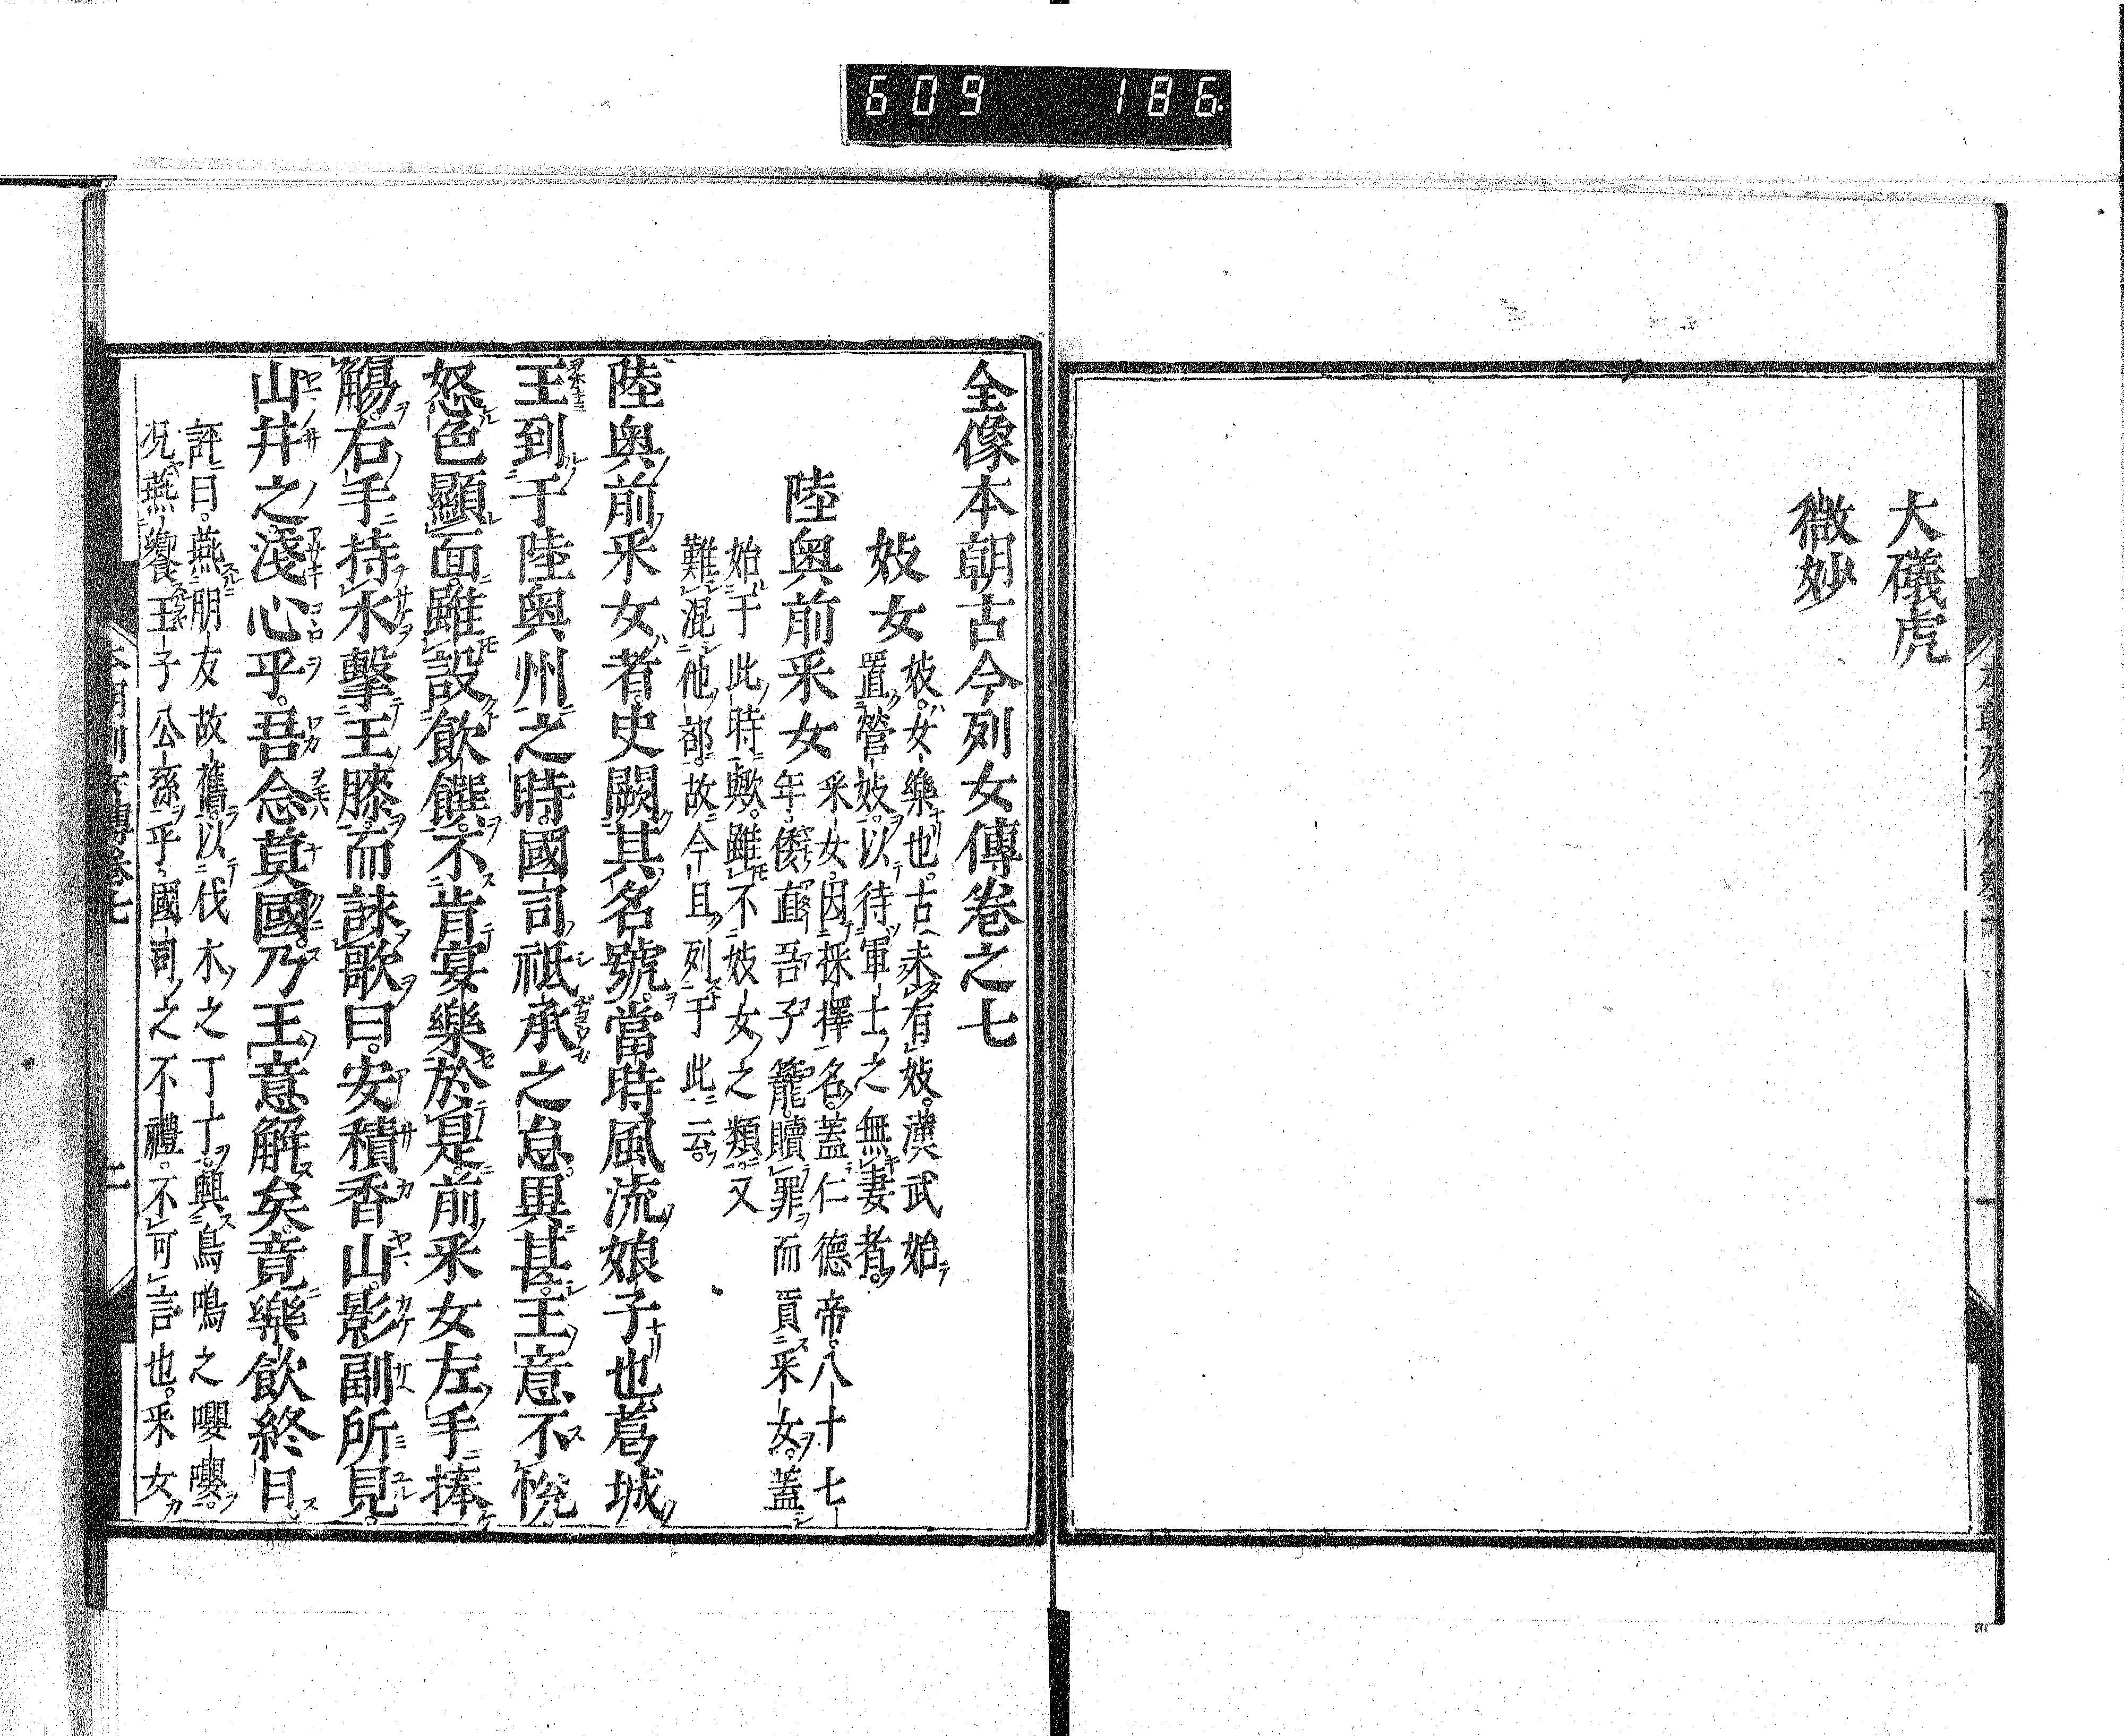 609 186
大礒虎
微妙
全像本朝古今列女傳卷之七
妓女
妓女樂也古未有妓漢武始
置營妓以待軍士之無妻者
陸奥前采女
采女因採擇名蓋仁德帝八十七
年俀直吾子籠贖罪而貢采女蓋
始于此時歟雖不妓女之類又
難混他部故今且列于此云
陸奥前采女者史闕其名號當時風流娘子也葛城
王到于陸奥州之時國司祗承之怠異甚王意不悅
怒色顯面雖設飲饌不肯宴樂於是前采女左手捧
觴右手持水擊王膝而詠歌曰安積香山影副所見
山井之淺心乎吾念莫國乃王意解矣竟樂飲終日
評曰燕朋友故舊以伐木之丁丁興鳥鳴之嚶嚶
况燕饗王子公孫乎國司之不禮不可言也采女
本朝列女傳卷七